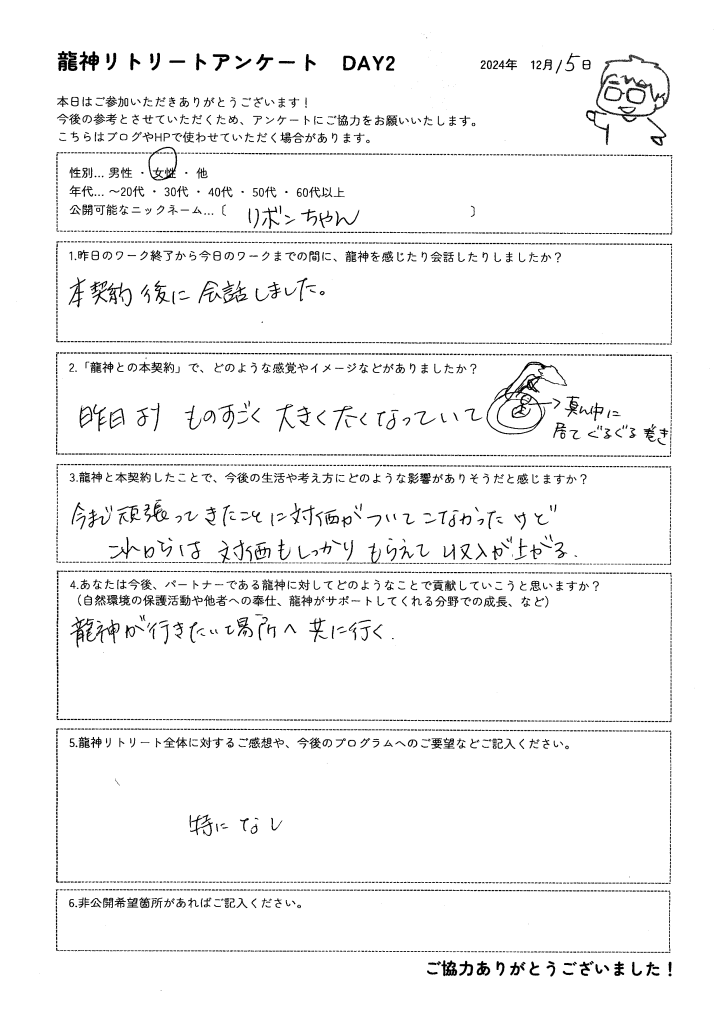 龍神リトリートアンケート　DAY2
2024年　12月15日
本日はご参加いただきありがとうございます！
今後の参考とさせていただくため、アンケートにご協力をお願いいたします。
こちらはブログやHPで使わせていただく場合があります。
性別… 男性 ・ 女性 ・ 他
年代… ～20代 ・ 30代 ・ 40代 ・ 50代 ・ 60代以上
公開可能なニックネーム…〔　リボンちゃん　〕
1.昨日のワーク終了から今日のワークまでの間に、龍神を感じたり会話したりしましたか？
本契約後に会話しました。
2.「龍神との本契約」で、どのような感覚やイメージなどがありましたか？
昨日より ものすごく 大きく太くなっていて
→真ん中に
居てぐるぐる巻き
3.龍神と本契約したことで、今後の生活や考え方にどのような影響がありそうだと感じますか？
今まで頑張ってきたことに対価がついてこなかったけど
これからは 対価もしっかりもらえて 収入が上がる.
4.あなたは今後、パートナーである龍神に対してどのようなことで貢献していこうと思いますか？
（自然環境の保護活動や他者への奉仕、龍神がサポートしてくれる分野での成長、など）
龍神が行きたい場所へ 共に行く.
5.龍神リトリート全体に対するご感想や、今後のプログラムへのご要望などご記入ください。
特になし
6.非公開希望箇所があればご記入ください。
ご協力ありがとうございました！